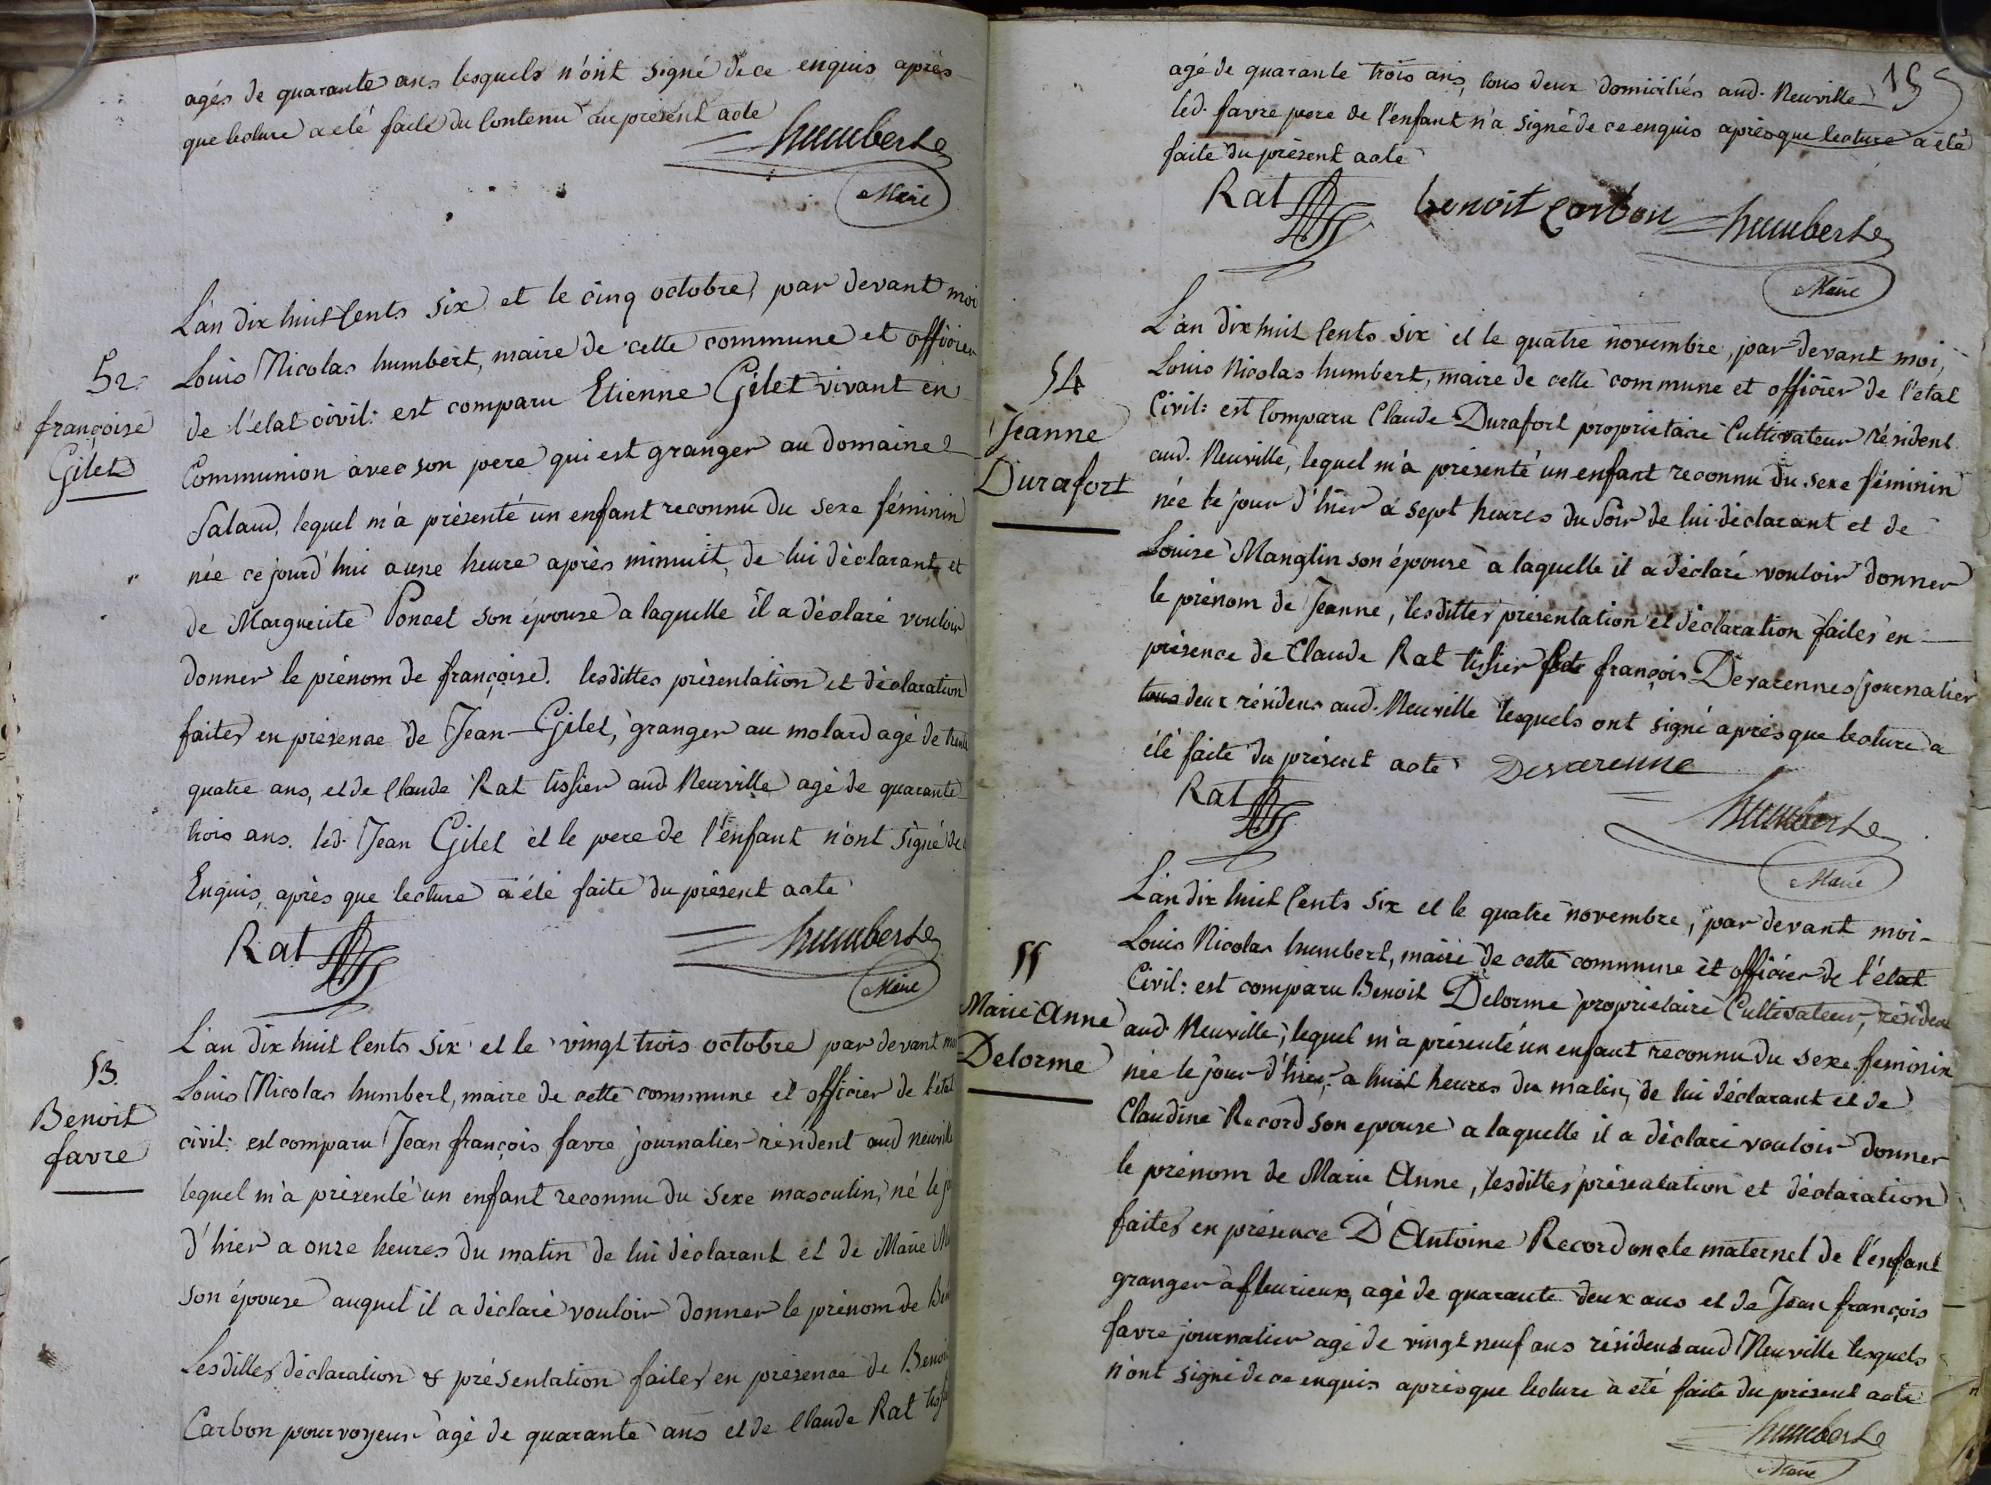 agés de quarante ans lesquels n'ont signé de ce enquis après
que lecture a eté faite du contenu au présent acte
humbert
Maire
L'an dix huit Cents Six et le cinq octobre, par devant moi
52.
Louis Nicolas humbert, maire de cette commune et officier
françoise
Gilet
de l'état civil: est comparu Etienne Gilet vivant en
Communion avec son pere qui est granger au domaine
Salaud, lequel m'a présenté un enfant reconnu du sexe féminin
née ce jourd'hui a une heure après minuit, de lui déclarant et
de Marguerite Poncet son épouse a laquelle il a déclaré vouloir
donner le prénom de françoise. lesdittes présentation et déclaration
faites en présence de Jean Gilet, granger au molard agé de trente
quatre ans, et de Claude Rat tissier aud Neuville agé de quarante
trois ans. led. Jean Gilet et le pere de l'enfant n'ont signé de
Enquis, après que lecture a été faite du présent acte
Rat
humbert
Maire
L'an dix huit Cents Six et le vingt trois octobre par devant moi
53.
Benoit
favre
Louis Nicolas humbert, maire de cette commune et officier de l'état
civil: est comparu Jean françois favre journalier résident aud neuville
lequel m'a présenté un enfant reconnu du Sexe masculin, né le
d'hier a onze heures du matin de lui déclarant et de Marie
son épouse auquel il a déclaré vouloir donner le prénom de Ben
Lesdittes déclaration & présentation faites en présence de Benoit
Carbon pourvoyeur agé de quarante ans et de Claude Rat tissier
155
agé de quarante trois ans, tous deux domiciliés aud. Neuville
led. favre pere de l'enfant n'a signé de ce enquis après que lecture a été
faite du présent acte
Rat
benoit Carbon
humbert
Maire
L'an dix huit Cents Six et le quatre novembre, par devant moi,
54
Jeanne
Durafort
Louis Nicolas humbert, maire de cette commune et officier de l'état
Civil: est Comparu Claude Durafort propriétaire Cultivateur résident
aud. Neuville, lequel m'a présenté un enfant reconnu du sexe féminin
née le jour d'hier a sept heures du Soir de lui déclarant et de
Louise Manglin son épouse a laquelle il a déclaré vouloir donner
le prénom de Jeanne, lesdittes présentation et déclaration faites en
présence de Claude Rat tissier françois Devarennes journalier
tous deux résidens aud. Neuville lesquels ont signé après que lecture a
été faite du présent acte
Devarenne
Rat
humbert
Maire
L'an dix huit Cents Six et le quatre novembre, par devant moi
55
Marie Anne
Delorme
Louis Nicolas humbert, maire de cette commune et officier de l'état
Civil: est comparu Benoit Delorme propriétaire Cultivateur, résident
aud. Neuville, lequel m'a présenté un enfant reconnu du sexe féminin
née le jour d'hier, a huit heures du matin, de lui déclarant et de
Claudine Record son epouse a laquelle il a déclaré vouloir donner
le prénom de Marie Anne, lesdittes présentation et déclaration
faites en présence D'Antoine Record oncle maternel de l'enfant
granger a fleurieux, agé de quarante deux ans et de Jean françois
favre journalier agé de vingt neuf ans résident aud Neuville lesquels
n'ont signé de ce enquis après que lecture a été faite du présent acte
humbert
Maire